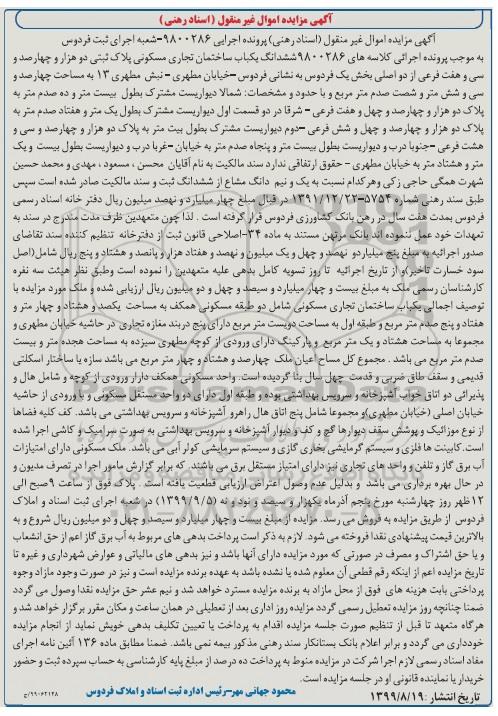 آگهی مزایده اموال غیرمنقول ( اسناد رهنی )
آگهی مزایده اموال غیر منقول (اسناد رهنی) پرونده اجرایی ۹۸۰۰۲۸۶-شعبه اجرای ثبت فردوس
به موجب پرونده اجرائی کلاسه های ۹۸۰۰۲۸۶ ششدانگ یکباب ساختمان تجاری مسکونی پلاک ثبتی دو هزار و چهارصد و
سی و هفت فرعی از دو اصلی بخش یک فردوس به نشانی فردوس -خیابان مطهری - نبش مطهری ۱۳ به مساحت چهارصد و
سی و شش متر و شصت صدم متر مربع و با حدود و مشخصات: شمالا دیواریست مشترک بطول بیست متر و ده صدم متر به
پلاک دو هزار و چهارصد و چهل و هفت فرعی - شرقا در دو قسمت اول دیواریست مشترک بطول یک متر و هفتاد صدم متر به
پلاک دو هزار و چهارصد و چهل و شش فرعی -دوم دیواریست مشترک بطول بیت متر به پلاک دو هزار و چهارصد و سی و
هشت فرعی -جنوبا درب و دیواریست بطول بیست متر و پنجاه صدم متر به خیابان -غربا درب و دیواریست بطول بیست و یک
متر و هشتاد متر به خیابان مطهری - حقوق ارتفاقی ندارد سند مالکیت به نام آقایان محسن ، مسعود ، مهدی و محمد حسین
شهرت همگی حاجی زکی وهرکدام نسبت به یک و نیم دانگ مشاع از ششدانگ ثبت و سند مالکیت صادر شده است سپس
طبق سند رهنی شماره ۵۷۵۴-۱۳۹۱/۱۲/۲۳ در قبال مبلغ چهار میلیارد و نهصد میلیون ریال دفتر خانه اسناد رسمی
فردوس بمدت هفت سال در رهن بانک کشاورزی فردوس قرار گرفته است . لذا چون متعهدین ظرف مدت مندرج در سند به
تعهدات خود عمل ننموده اند بانک مرتهن مستند به ماده ۳۴-اصلاحی قانون ثبت از دفترخانه تنظیم کننده سند تقاضای
صدور اجرائیه به مبلغ پنج میلیاردو نهصد و چهل و یک میلیون و نهصد و هفتاد هزار و پانصد و هشتاد و پنج ریال شامل(اصل
سود خسارت تاخیر)و از تاریخ اجرائیه تا روز تسویه کامل بدهی علیه متعهدین را نموده است وطبق نظر هیئت سه نفره
کارشناسان رسمی ملک به مبلغ بیست و چهار میلیارد و سیصد و چهل و دو میلیون ریال ارزیابی شده و ملک مورد مزایده با
توصیف اجمالی یکباب ساختمان تجاری مسکونی شامل دو طبقه مسکونی همکف به مساحت یکصد و هشتاد و چهار متر و
هفتاد و پنج صدم متر مربع و طبقه اول به مساحت دویست متر مربع دارای پنج دربند مغازه تجاری در حاشیه خیابان مطهری و
مجموعا به مساحت هشتاد و یک متر مربع و پارکینگ دارای ورودی از کوچه مطهری سیزده به مساحت هجده متر و بیست
صدم متر مربع می باشد . مجموع کل مساح اعیان ملک چهارصد و هشتاد و چهار متر مربع می باشد سازه یا ساختار اسکلتی
قدیمی و سقف طاق ضربی و قدمت چهل سال بنا گردیده است. واحد مسکونی همکف دارار ورودی از کوچه و شامل هال و
پذیرائی دو اتاق خواب آشپزخانه و سرویس بهداشتی بوده و طبقه اول دارای دو واحد مستقل مسکونی و با ورودی از حاشیه
خیابان اصلی (خیابان مطهری)و مجموعا شامل پنج اتاق هال راهرو آشپزخانه و سرویس بهداشتی می باشد. کف کلیه فضاها
از نوع موزائیک و پوشش سقف دیوارها گچ و کف و دیوار آشپزخانه و سرویس بهداشتی به صورت سرامیک و کاشی اجرا شده
است.کابینت ها فلزی و سیستم گرمایشی بخاری گازی و سیستم سرمایشی کولر آبی می باشد. ملک مسکونی دارای امتیازات
آب برق گاز و تلفن و واحد های تجاری نیز دارای امتیاز مستقل برق می باشند. که برابر گزارش مامور اجرا در تصرف مدیون و
در حال بهره برداری می باشد و بدلیل عدم وصول اعتراض ارزیابی قطعیت یافته است . پلاک فوق از ساعت ۹صبح الی
۱۲ظهر روز چهارشنبه مورخ پنجم آذرماه یکهزار و سیصد و نود و نه (۱۳۹۹/۹/۵) در شعبه اجرای ثبت اسناد و املاک
فردوس از طریق مزایده به فروش می رسد. مزایده از مبلغ بیست و چهار میلیارد و سیصد و چهل و دو میلیون ریال شروع و به
بالاترین قیمت پیشنهادی نقدا فروخته می شود. لازم به ذکر است پرداخت بدهی های مربوط به آب برق گاز اعم از حق انشعاب
و یا حق اشتراک و مصرف در صورتی که مورد مزایده دارای آنها باشد و نیز بدهی های مالیاتی و عوارض شهرداری و غیره تا
تاریخ مزایده اعم از اینکه رقم قطعی آن معلوم شده یا نشده باشد به عهده برنده مزایده است و نیز در صورت وجود مازاد وجوه
پرداختی بابت هزینه های فوق از محل مازاد به برنده مزایده مسترد خواهد شد و نیم عشر حق مزایده نقدا وصول می گردد
ضمنا چنانچه روز مزایده تعطیل رسمی گردد مزایده روز اداری بعد از تعطیلی در همان ساعت و مکان مقرر برگزار خواهد شد و
هرگاه متعهد تا قبل از تنظیم صورت جلسه مزایده اقدام به پرداخت یا تعیین تکلیف بدهی خویش نماید از انجام مزایده
خودداری می گردد و برابر اعلام بانک بستانکار سند رهنی مذکور بیمه نمی باشد. ضمنا مطابق ماده ۱۳۶ آئین نامه اجرای
مفاد اسناد رسمی لازم اجرا شرکت در مزایده منوط به پرداخت ده درصد از مبلغ پایه کارشناسی به حساب سپرده ثبت و حضور
خریدار یا نماینده قانونی او در جلسه مزایده است.
محمود جهانی مهر-رئیس اداره ثبت اسناد و املاک فردوس
تاریخ انتشار :۱۳۹۹/۸/۱۹
۹۹۰۶۲۱۴۸/ج